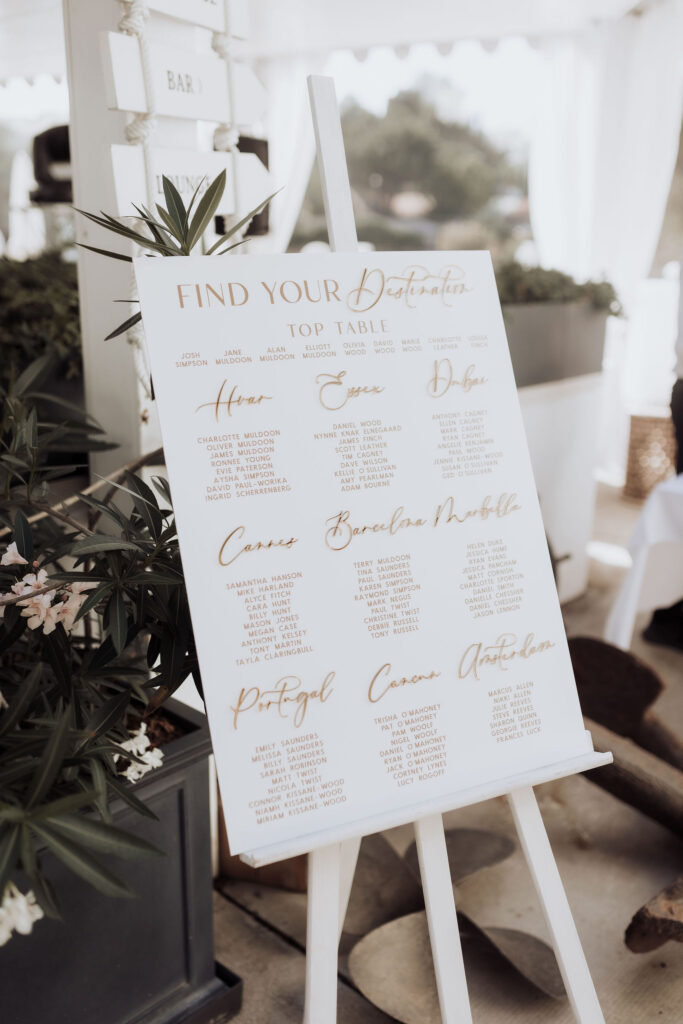 BAR
LOUNGE
FIND YOUR Destination
TOP TABLE
JOSH SIMPSON JANE MULDOON ALAN MULDOON ELLIOTT MULDOON OLIVIA WOOD DAVID WOOD MARIE WOOD CHARLOTTE LEATHER LOUISA FINCH
Hvar
CHARLOTTE MULDOON
OLIVER MULDOON
JAMES MULDOON
RONNEE YOUNG
EVIE PATERSON
AYSHA SIMPSON
DAVID PAUL-WORIKA
INGRID SCHERRENBERG
Essex
DANIEL WOOD
NYNNE KNAK ELNEGAARD
JAMES FINCH
SCOTT LEATHER
TIM CAGNEY
DAVE WILSON
KELLIE O'SULLIVAN
AMY PEARLMAN
ADAM BOURNE
Dubai
ANTHONY CAGNEY
ELLEN CAGNEY
MARK CAGNEY
RYAN CAGNEY
ANGELLE BENJAMIN
PAUL WOOD
JENNIE KISSANE-WOOD
SUSAN O'SULLIVAN
GED O'SULLIVAN
Cannes
SAMANTHA HANSON
MIKE HARLAND
ALYCE FITCH
CARA HUNT
BILLY HUNT
MASON JONES
MEGAN CASE
ANTHONY KELSEY
TONY MARTIN
TAYLA CLARINGBULL
Barcelona
TERRY MULDOON
TINA SAUNDERS
PAUL SAUNDERS
KAREN SIMPSON
RAYMOND SIMPSON
MARK NEGUS
PAUL TWIST
CHRISTINE TWIST
DEBBIE RUSSELL
TONY RUSSELL
Marbella
HELEN DUKE
JESSICA HUME
RYAN EVANS
JESSICA PANCHAM
MATT CORNISH
CHARLOTTE SHORTON
DANIEL SMITH
DANIELLE CHESSHER
DANIEL CHEDGEY
JASON LENNON
Portugal
EMILY SAUNDERS
MELISSA SAUNDERS
BILLY SAUNDERS
SARAH ROBINSON
MATT TWIST
NICOLA TWIST
CONNOR KISSANE-WOOD
NIAMH KISSANE-WOOD
MIRIAM KISSANE-WOOD
Cancun
TRISHA O'MAHONEY
PAT O'MAHONEY
PAM WOOLF
NIGEL WOOLF
DANIEL O'MAHONEY
RYAN O'MAHONEY
JACK O'MAHONEY
CORTNEY LYNEE
LUCY ROGOFF
Amsterdam
MARCUS ALLEN
NIKKI ALLEN
JULIE REEVES
STEVE REEVES
SHARON QUINN
GEORGIE REEVES
FRANCES LUCK